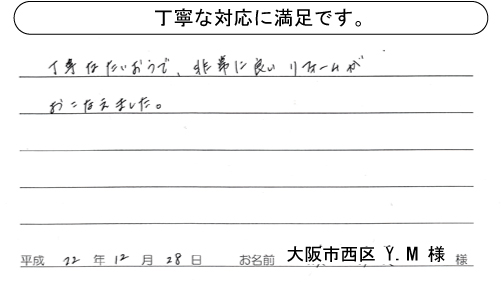 丁寧な対応に満足です。
丁寧なたいおうで、非常に良いリフォームが
おこなえました。
平成 22 年 12 月 28 日 お名前 大阪市西区 Y.M 様 様